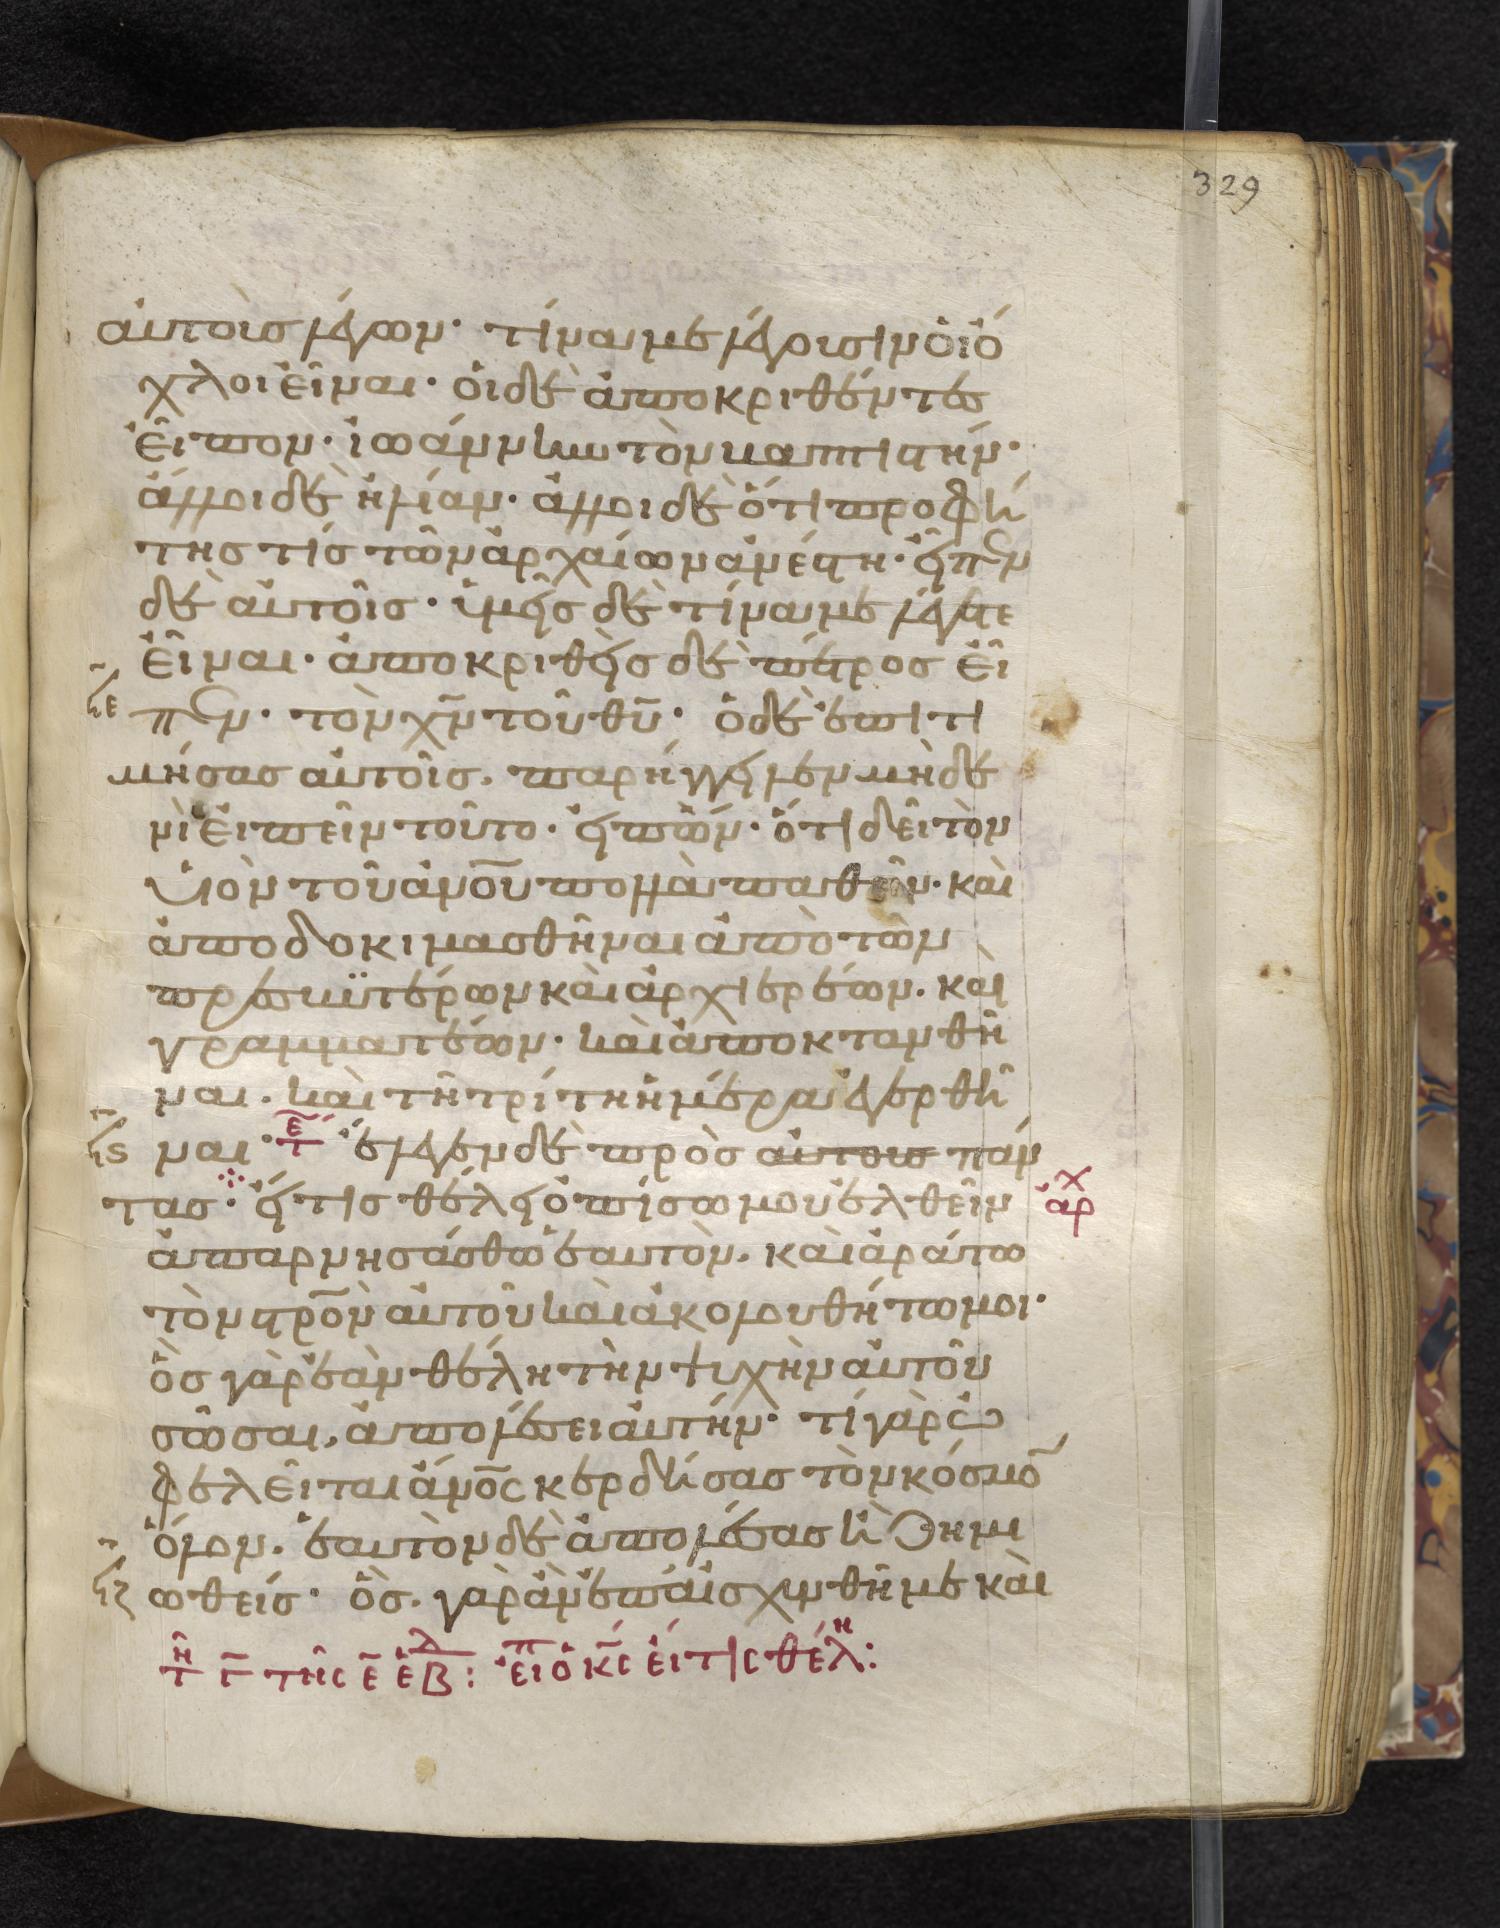 329
αὐτοῖς λέγων· τίνα με λέγουσιν οἱ ὄ
χλοι εἶναι· οἱ δὲ ἀποκριθέντες
εἶπον· ἰωάννην τὸν βαπτιστήν·
ἄλλοι δὲ ἠλίαν· ἄλλοι δὲ ὅτι προφή
της τίς τῶν ἀρχαίων ἀνέστη· εἶπεν
δὲ αὐτοῖς· ὑμεῖς δὲ τίνα με λέγετε
εἶναι· ἀποκριθεὶς δὲ πέτρος εἶ
πεν· τὸν χ̅ν̅ τοῦ θ̅υ̅· ὁ δὲ ἐπιτι
μήσας αὐτοῖς, παρήγγειλεν μηδε
νὶ εἰπεῖν τοῦτο· εἰπών· ὅτι δεῖ τὸν
υἱὸν τοῦ ἀνο̅υ̅ πολλὰ παθεῖν· καὶ
ἀποδοκιμασθῆναι ἀπὸ τῶν
πρεσβϋτέρων καὶ ἀρχιερέων. καὶ
γραμματέων· καὶ ἀποκτανθῆ
ναι. καὶ τῆ τρίτη ἡμέρα ἐγερθῆ
ϟϛ ναι· τ̅ε̅ ἔλεγεν δὲ πρὸς αὐτοὺς πάν
τας· εἴ τις θέλει ὀπίσω μου ἐλθεῖν ἀρχ
ἀπαρνησάσθω ἑαυτὸν, καὶ ἀράτω
τὸν στρο̅ν̅ αὐτοῦ καὶ ἀκολουθήτω μοι·
ὃς γὰρ ἐὰν θέλη τὴν ψυχὴν αὐτοῦ
σῶσαι, ἀπολέσει αὐτήν· τί γὰρ ὠ
φελεῖται ἄνο̅ς̅ κερδήσας τὸν κόσμο̅
ὅλον. ἑαυτὸν δὲ ἀπολέσας ἢ ζημι
ϟζ ωθείς· ὃς. γὰρ ἂν ἐπαισχυνθῆ με καὶ
τῆ γ̅ τῆς ε̅ ἑβ: εἶπ ὁ κ̅ς̅ εἴ τις θέλη: